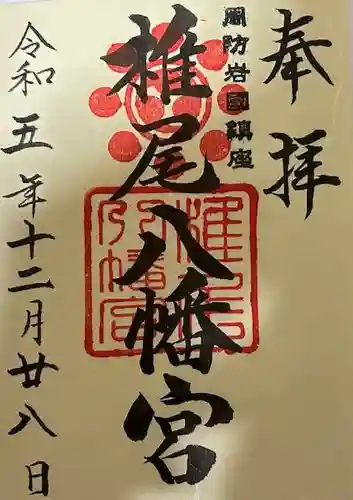 奉拝
周防岩國鎮座
椎尾八幡宮
令和五年十二月廿八日
椎尾
八幡宮